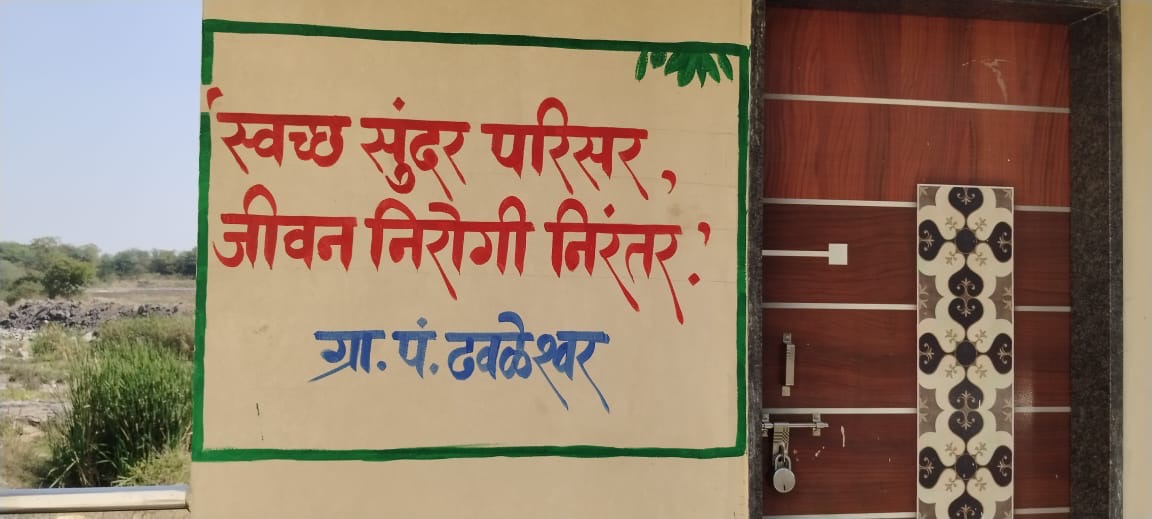 'स्वच्छ सुंदर परिसर,
जीवन निरोगी निरंतर.'
ग्रा. पं. ढवळेश्वर